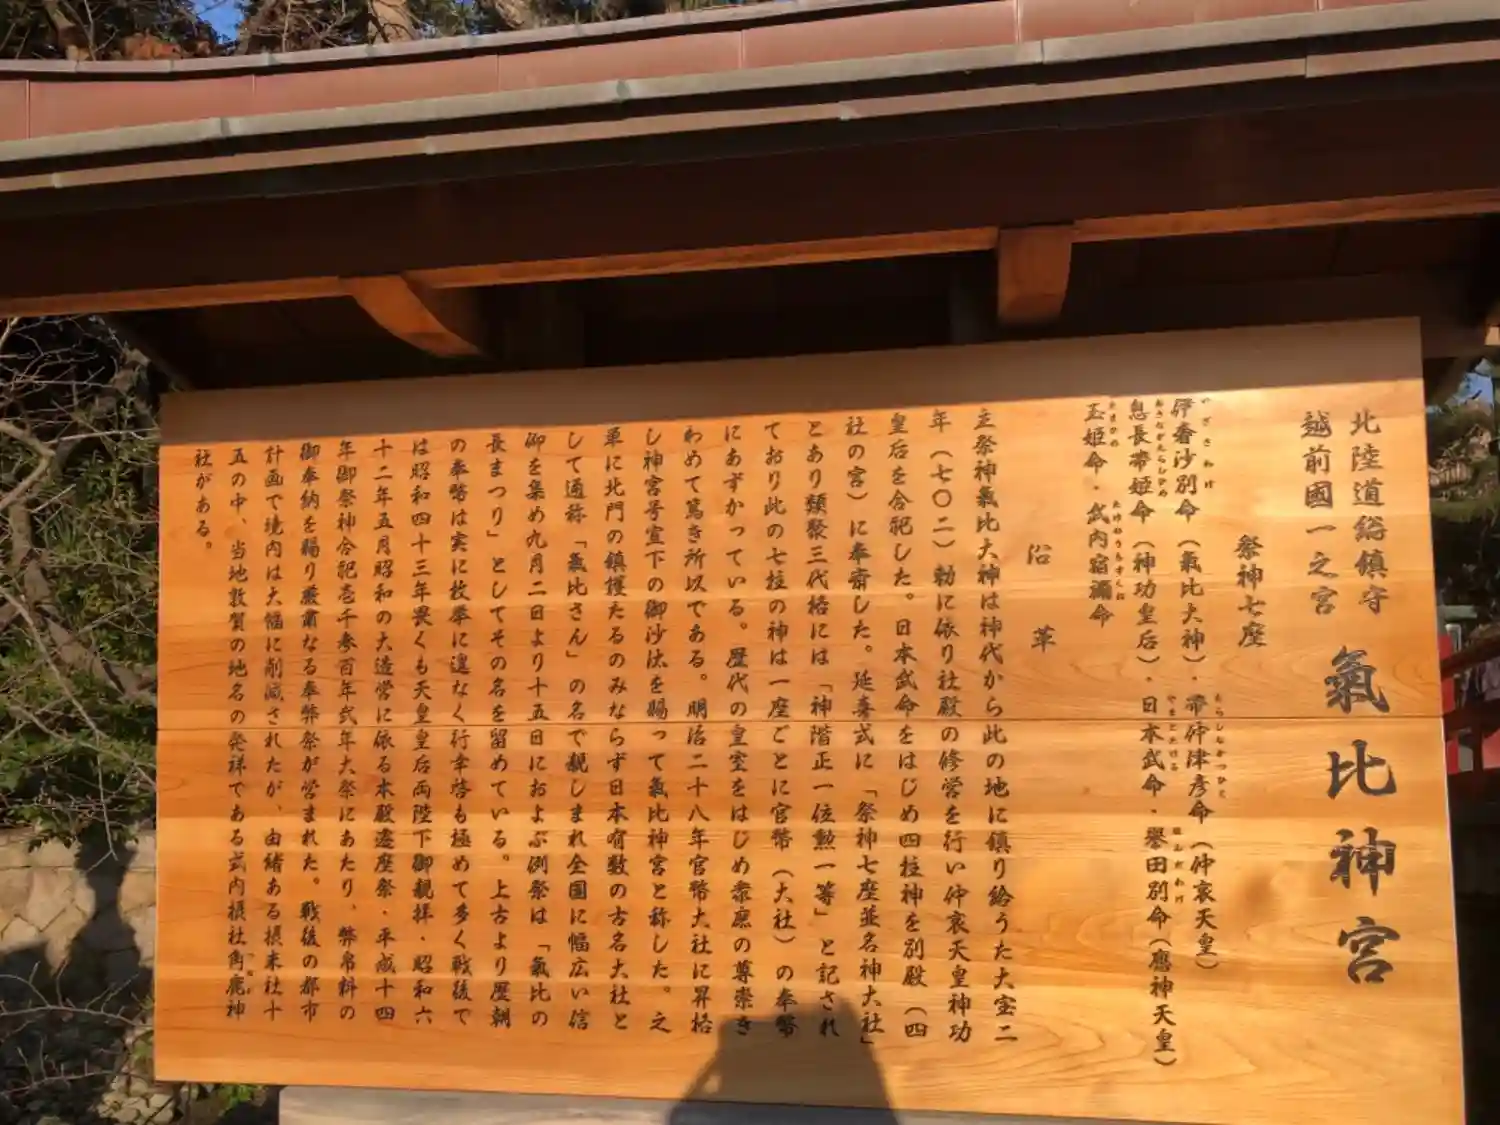 北陸道総鎮守
越前國一之宮
氣比神宮
祭神七座
伊奢沙別命（氣比大神）、帶仲津彦命（仲哀天皇）
いざさわけ
たらしなかつひこ
息長帶姫命（神功皇后）・日本武命・譽田別命（應神天皇）
おきながたらしひめ
やまとたける
ほんだわけ
玉姫命・武内宿禰命
たまひめ
たけのうちすくね
沿革
主祭神氣比大神は神代から此の地に鎮り給うた大宝二
年（七〇二）勅に依り社殿の修営を行い仲哀天皇神功
皇后を合祀した。日本武命をはじめ四柱神を別殿（四
社の宮）に奉齋した。延喜式に「祭神七座並名神大社」
とあり類聚三代格には「神階正一位勲一等」と記され
ており此の七柱の神は一座ごとに官幣（大社）の奉幣
にあずかっている。歴代の皇室をはじめ衆庶の尊崇き
わめて篤き所以である。明治二十八年官幣大社に昇格
し神宮号宣下の御沙汰を賜って氣比神宮と称した。之
単に北門の鎮護たるのみならず日本有数の古名大社と
して通称「氣比さん」の名で親しまれ全国に幅広い信
仰を集め九月二日より十五日におよぶ例祭は「氣比の
長まつり」としてその名を留めている。上古より歴朝
の奉幣は実に枚挙に遑なく行幸啓も極めて多く戦後で
は昭和四十三年畏くも天皇皇后両陛下御親拝・昭和六
十二年五月昭和の大造営に依る本殿遷座祭・平成十四
年御祭神合祀壱千参百年式年大祭にあたり、幣帛料の
御奉納を賜り厳粛なる奉幣祭が営まれた。戦後の都市
計画で境内は大幅に削減されたが、由緒ある摂末社十
五の中、当地敦賀の地名の発祥である式内摂社角鹿神
つぬが
社がある。